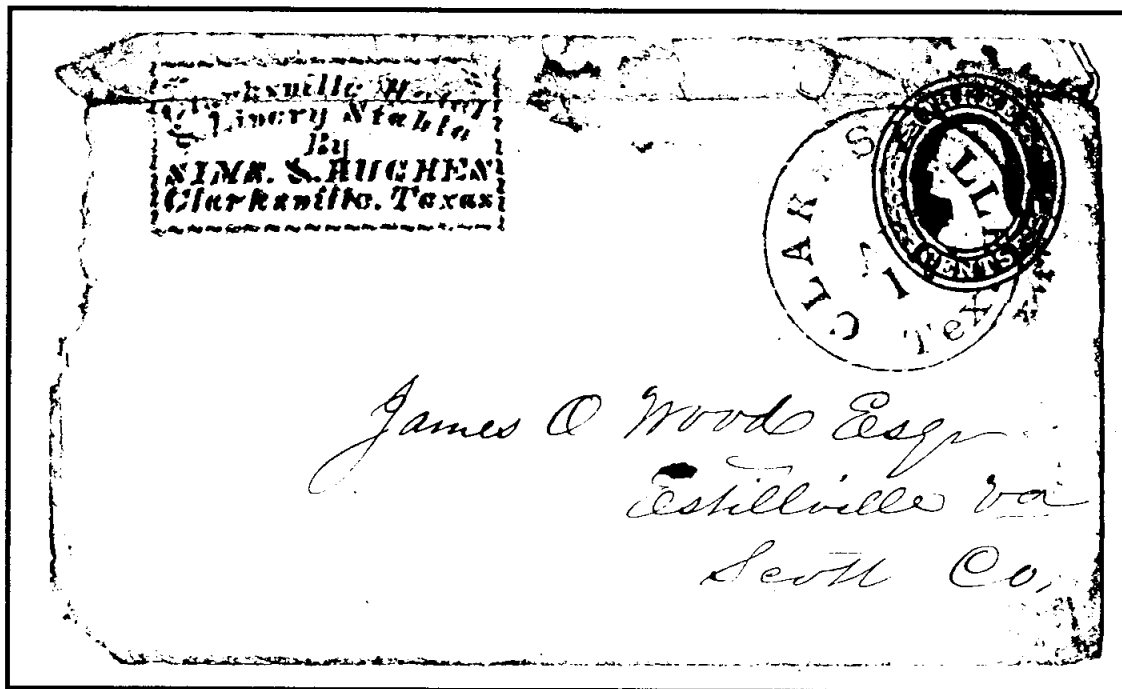 Clarksville Hotel
& Livery Stable
By
SIMS. & HUGHES
Clarksville. Texas
THREE
CENTS
CLARKSVILLE
1
Tex
James O Wood Esqr
Estillville Va
Scott Co,